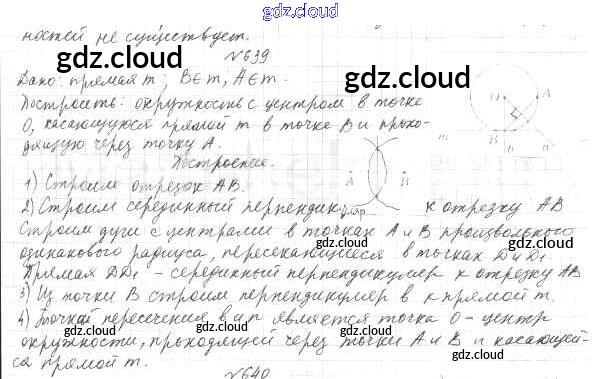 gdz.cloud
ностей не существует.
№639
gdz.cloud
gdz.cloud
Дано: прямая m; B∈m; A∈m.
Построить: окружность с центром в точке
O, касающуюся прямой m в точке B и прохо-
дящую через точку A.
O A
m B n
Построение.
1) Строим отрезок AB.
A B
2) Строим серединный перпендикуляр к отрезку AB
Строим дуги с центрами в точках A и B произвольного
одинакового радиуса, пересекающиеся в точках D и D₁.
Прямая DD₁ - серединный перпендикуляр к отрезку AB
3) Из точки B строим перпендикуляр в к прямой m.
4) Точкой пересечения в и п является точка O - центр
окружности, проходящей через точки A и B и касающей-
ся прямой m.
№640
gdz.cloud
gdz.cloud
gdz.cloud
gdz.cloud
gdz.cloud
gdz.cloud